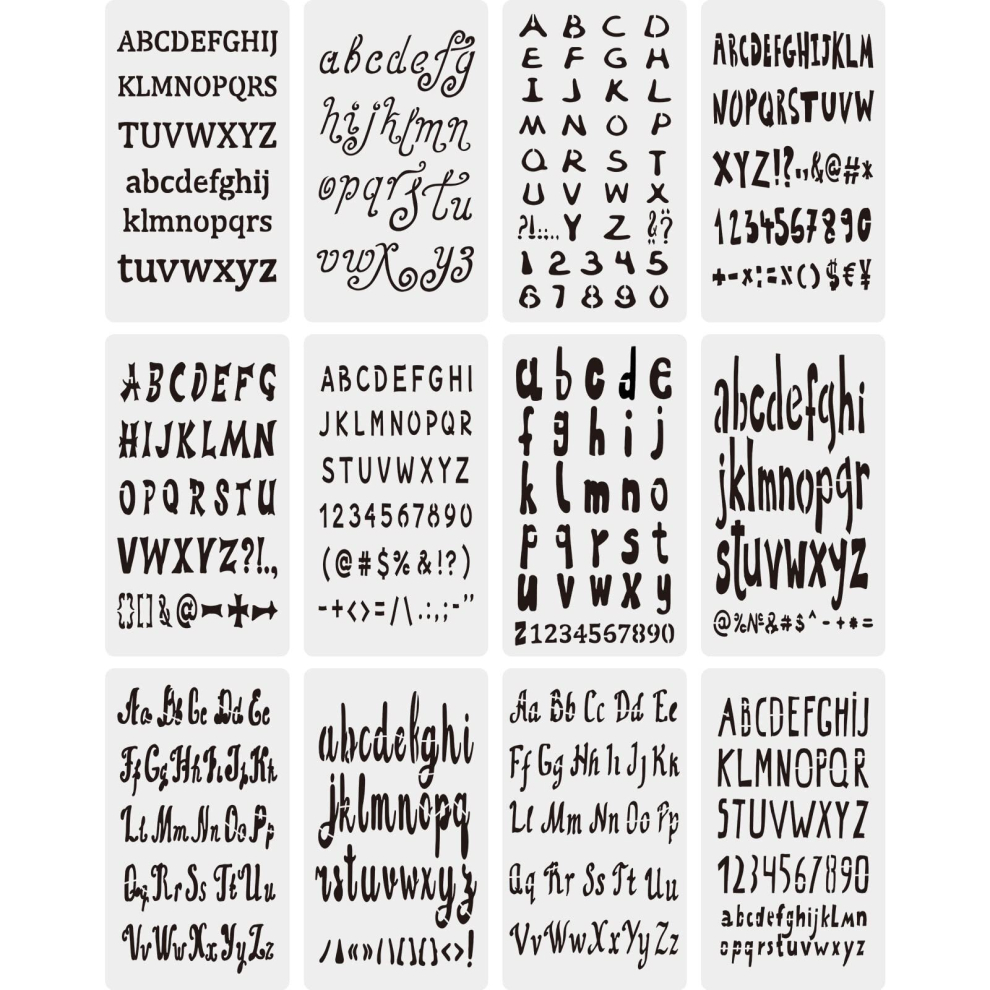 ABCDEFGHIJ
KLMNOPQRS
TUVWXYZ
abcdefghij
klmnopqrs
tuvwxyz
abcdefg
hijklmn
opqrstu
vwxyz
A B C D
E F G H
I J K L
M N O P
Q R S T
U V W X
?!.:... Y Z &?
1 2 3 4 5
6 7 8 9 0
ABCDEFGHIJKLM
NOPQRSTUVW
XYZ!?.,&@#*
1234567890
+-×:=%()$€¥
ABCDEFG
HIJKLMN
OPQRSTU
VWXYZ?!.,
{}[]&@
ABCDEFGHI
JKLMNOPQR
STUVWXYZ
1234567890
(@#$%&!?)
-+<>=/\.:,;-”
a b c d e
f g h i j
k l m n o
p q r s t
u v w x y
z1234567890
abcdefghi
jklmnopqr
stuvwxyz
@%№&#$^-+*=
Aa Bb Cc Dd Ee
Ff Gg Hh Ii Jj Kk
Ll Mm Nn Oo Pp
Qq Rr Ss Tt Uu
Vv Ww Xx Yy Zz
abcdefghi
jklmnopq
rstuvwxyz
Aa Bb Cc Dd Ee
Ff Gg Hh Ii Jj Kk
Ll Mm Nn Oo Pp
Qq Rr Ss Tt Uu
Vv Ww Xx Yy Zz
ABCDEFGHIJ
KLMNOPQR
STUVWXYZ
1234567890
abcdefghijklmn
opqrstuvwxyz